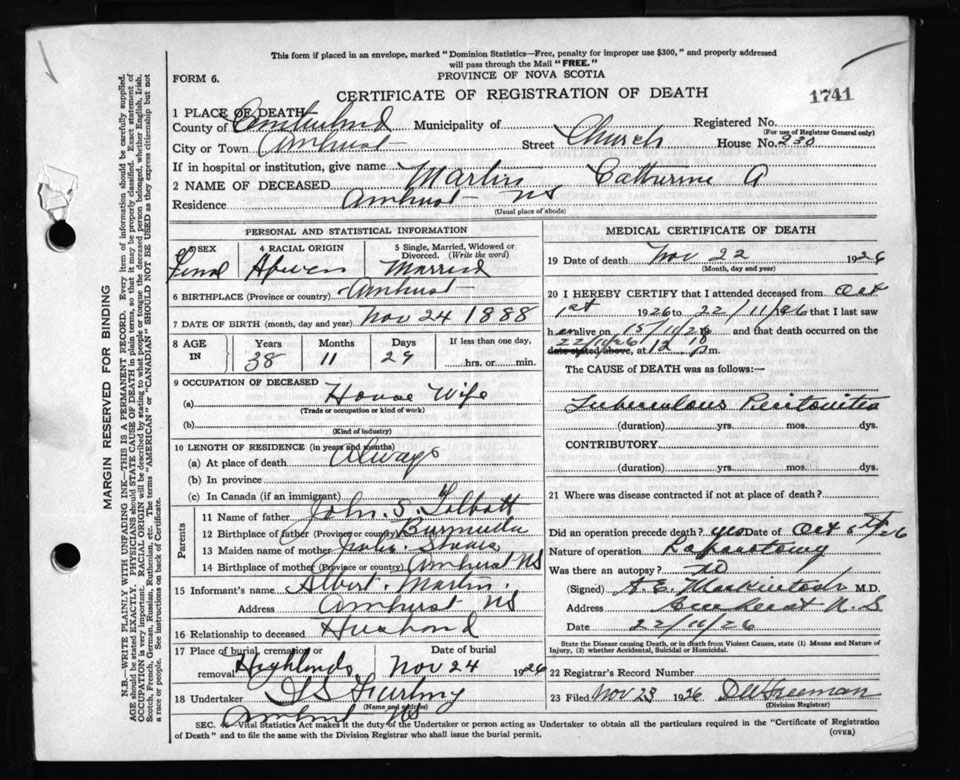 This form if placed in an envelope, marked "Dominion Statistics—Free, penalty for improper use $300," and properly addressed
will pass through the Mail "FREE."
FORM 6.
PROVINCE OF NOVA SCOTIA
CERTIFICATE OF REGISTRATION OF DEATH
1741
1 PLACE OF DEATH
County of Municipality of Registered No.
(For use of Registrar General only)
City or Town Amherst Street Church House No. 230
If in hospital or institution, give name
2 NAME OF DECEASED Martin Catherine A
Residence Amherst NS
(Usual place of abode)
PERSONAL AND STATISTICAL INFORMATION
3 SEX 4 RACIAL ORIGIN 5 Single, Married, Widowed or Divorced. (Write the word)
Married
6 BIRTHPLACE (Province or country) Amherst
7 DATE OF BIRTH (month, day and year) Nov 24 1888
8 AGE IN Years Months Days If less than one day,
38 11 29 hrs. or min.
9 OCCUPATION OF DECEASED
(a) House Wife
(Trade or occupation or kind of work)
(b)
(Kind of industry)
10 LENGTH OF RESIDENCE (in years and months)
(a) At place of death Always
(b) In province
(c) In Canada (if an immigrant)
Parents
11 Name of father John. S. Talbott
12 Birthplace of father (Province or country) Burmuda
13 Maiden name of mother
14 Birthplace of mother (Province or country) Amherst NS
15 Informant's name Albert. Martin.
Address Amherst NS
16 Relationship to deceased Husband
17 Place of burial, cremation or removal Highlands Date of burial Nov 24 1926
18 Undertaker
(Name and address)
Amherst NS
MEDICAL CERTIFICATE OF DEATH
19 Date of death Nov 22 1926
(Month, day and year)
20 I HEREBY CERTIFY that I attended deceased from Oct
1st 1926 to 22/11/1926 that I last saw
her alive on 15/11/26 and that death occurred on the
22/11/26
date stated above, at 12 m.
The CAUSE of DEATH was as follows:—
Tuberculous Peritonitis
(duration) yrs. mos. dys.
CONTRIBUTORY
(duration) yrs. mos. dys.
21 Where was disease contracted if not at place of death?
Did an operation precede death? yes Date of Oct 26
Nature of operation Laparotomy
Was there an autopsy? No
(Signed) A. E. Mackintosh M.D.
Address Amherst N.S
Date 22/11/26
State the Disease causing Death, or in death from Violent Causes, state (1) Means and Nature of Injury, (2) whether Accidental, Suicidal or Homicidal.
22 Registrar's Record Number
23 Filed Nov 23 1926 Freeman
(Division Registrar)
SEC. Vital Statistics Act makes it the duty of the Undertaker or person acting as Undertaker to obtain all the particulars required in the "Certificate of Registration
of Death" and to file the same with the Division Registrar who shall issue the burial permit.
(OVER)
MARGIN RESERVED FOR BINDING
N.B.—WRITE PLAINLY WITH UNFADING INK—THIS IS A PERMANENT RECORD. Every item of information should be carefully supplied.
AGE should be stated EXACTLY. PHYSICIANS should STATE CAUSE OF DEATH in plain terms, so that it may be properly classified. Exact statement of
OCCUPATION is very important. RACIAL ORIGIN will be described by stating to what people or tongue the deceased person belonged, whether English, Irish,
Scotch, French, German, Russian, Ruthenian, etc. The terms "AMERICAN" or "CANADIAN" SHOULD NOT BE USED as they express citizenship but not
a race or people. See instructions on back of Certificate.